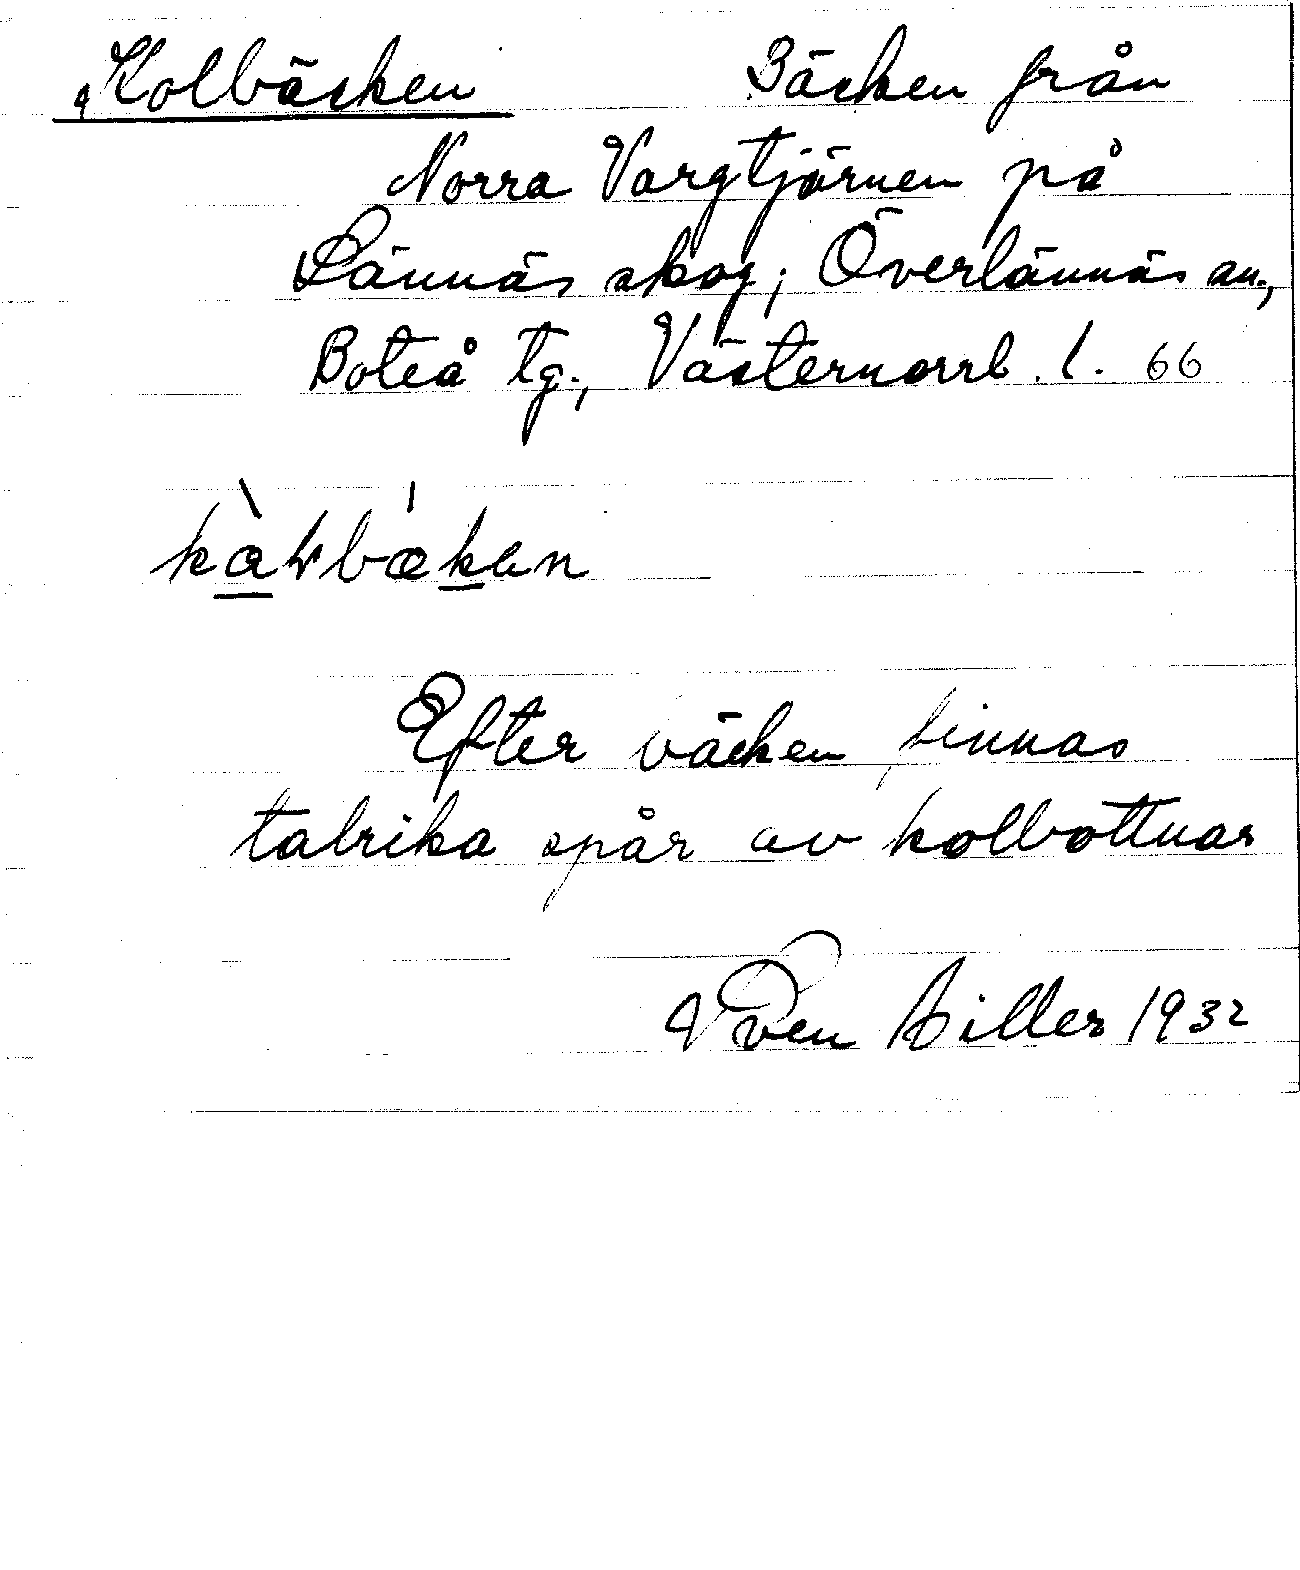 Kolbäcken Bäcken från
Norra Vargtjärnen på
Lännäs skog; Överlännäs sn.,
Boteå tg., Västernorrl. l. 66
Efter bäcken finnas
talrika spår av kolbottnar
Sven Hiller 1932